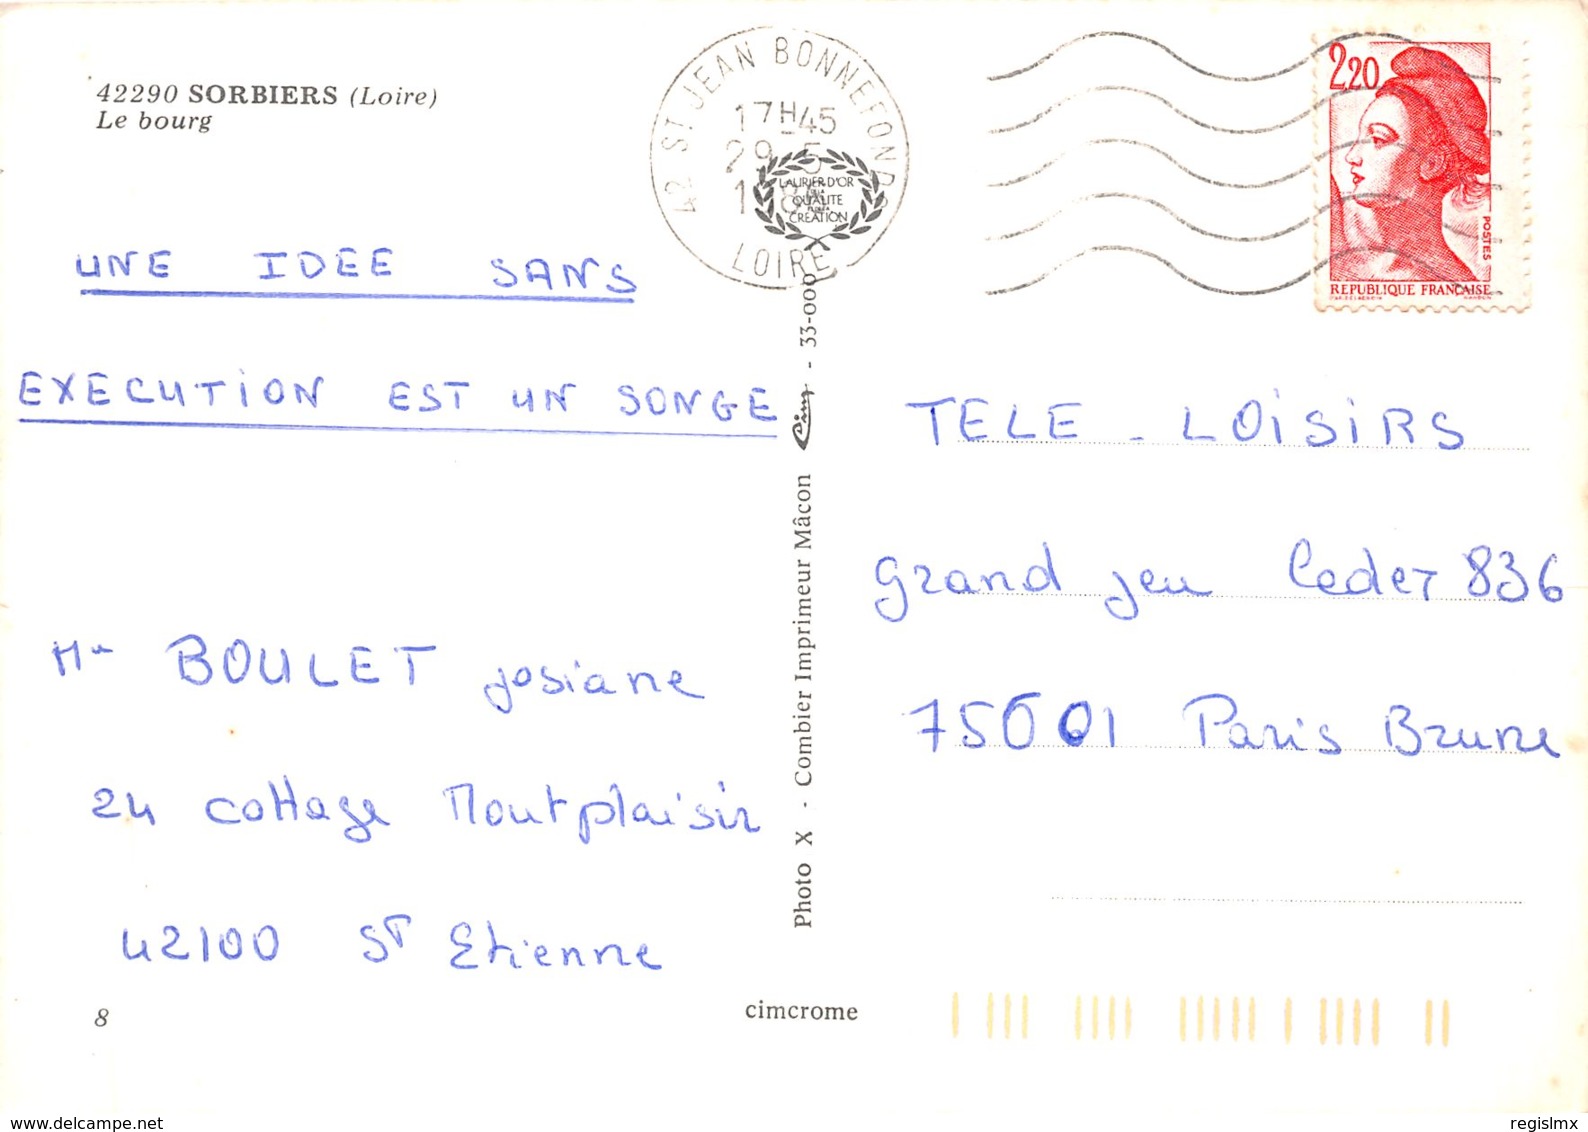 42290 SORBIERS (Loire)
Le bourg
42 ST JEAN BONNEFONDS
17H45
29-5
LOIRE
LAURIER D'OR
QUALITE
CREATION
2,20
POSTES
REPUBLIQUE FRANÇAISE
UNE IDEE SANS
EXECUTION EST UN SONGE
Photo X - Combier Imprimeur Mâcon Cim - 33-000
TELE - LOISIRS
grand jeu Cedex 836
75001 Paris Brune
Mme BOULET Josiane
24 cottage Montplaisir
42100 ST Etienne
8
cimcrome
www.delcampe.net
regislmx